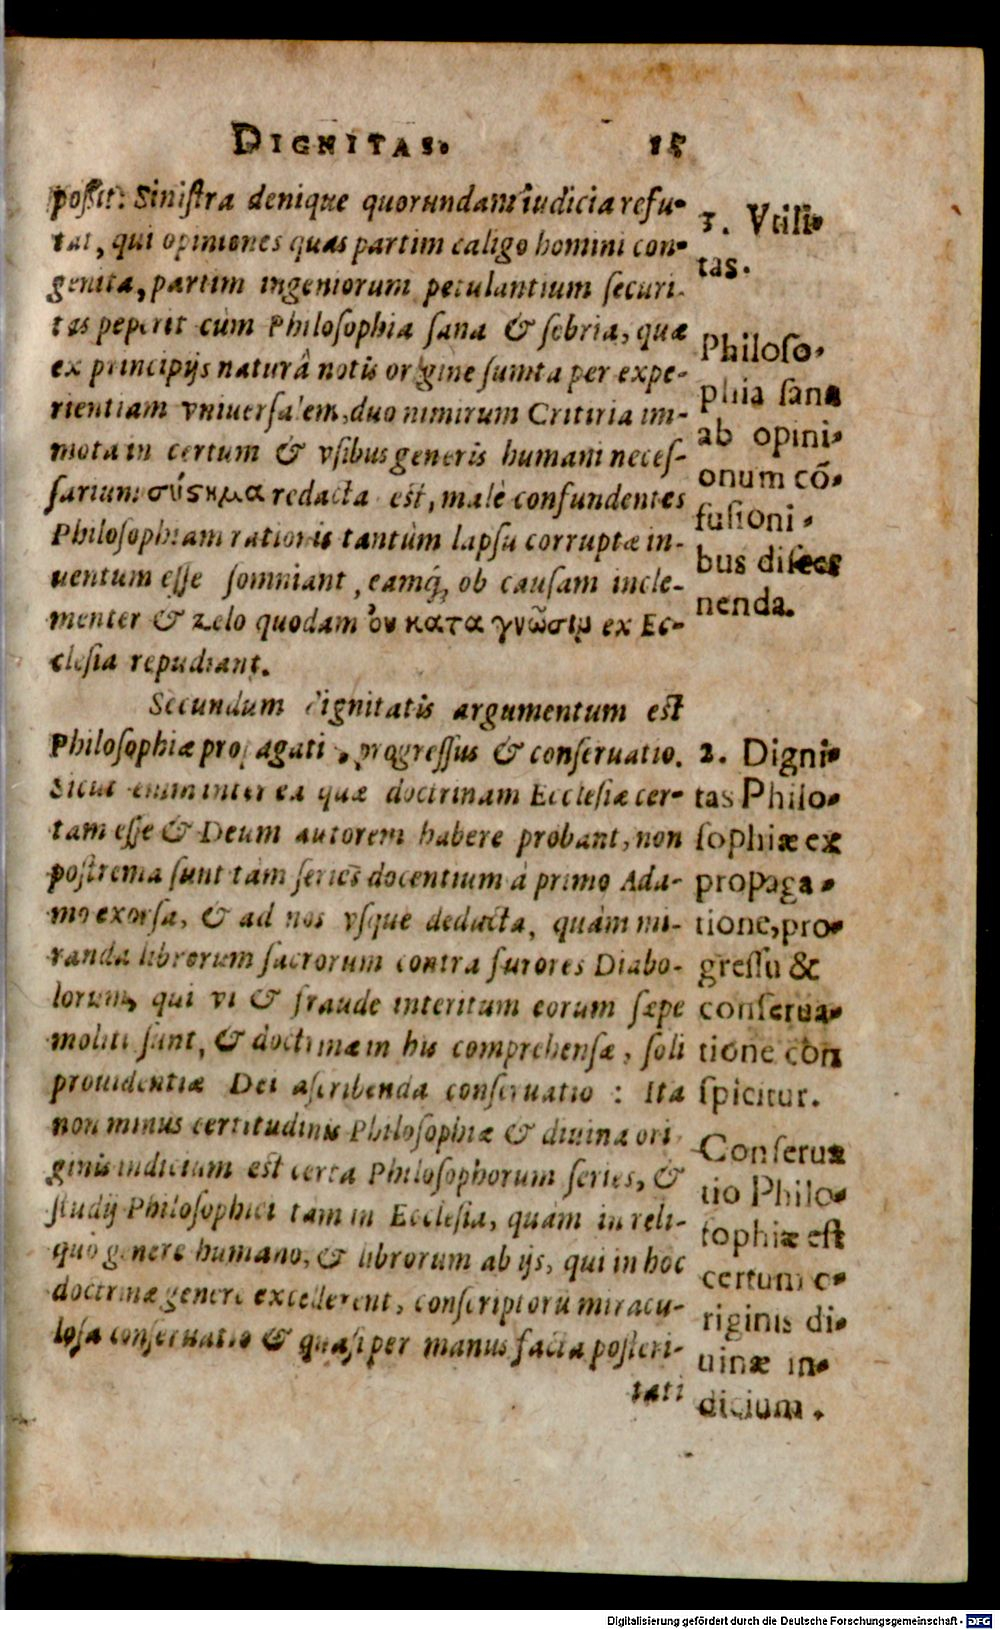 DIGNITAS. 15
possit. Sinistra denique quorundam iudicia refu-
tat, qui opiniones quas partim caligo homini con-
genita, partim ingeniorum petulantium securi-
tas peperit cùm Philosophia sana & sobria, quæ
ex principijs naturâ notis origine sumta per expe-
rientiam vniuersalem, duo nimirum Critiria im-
mota in certum & vsibus generis humani neces-
sarium σύςημα redacta est, malè confundentes
Philosophiam rationis tantùm lapsu corruptæ in-
uentum esse somniant, eamq́, ob causam incle-
menter & zelo quodam ὀυ κατα γνῶσιμ ex Ec-
clesia repudiant.
Secundum dignitatis argumentum est
Philosophiæ propagati, progressus & conseruatio.
Sicut enim inter ea quæ doctrinam Ecclesiæ cer-
tam esse & Deum autorem habere probant, non
postrema sunt tam series docentium à primo Ada-
mo exorsa, & ad nos vsque deducta, quàm mi-
randa librorum sacrorum contra furores Diabo-
lorum, qui vi & fraude interitum eorum sæpe
moliti sunt, & doctrinæ in his comprehensæ, soli
prouidentiæ Dei ascribenda conseruatio : Ita
non minus certitudinis Philosophiæ & diuinæ ori
ginis indicium est certa Philosophorum series, &
studij Philosophici tam in Ecclesia, quàm in reli-
quo genere humano, & librorum ab ijs, qui in hoc
doctrinæ genere excellerent, conscriptorū miracu-
losa conseruatio & quasi per manus facta posteri-
tati
3. Vtili-
tas.
Philoso-
phia sana
ab opini-
onum cō-
fusioni-
bus discer
nenda.
2. Digni-
tas Philo-
sophiæ ex
propaga-
tione, pro-
gressu &
conserua-
tione con
spicitur.
Conserua
tio Philo-
sophiæ est
certum o-
riginis di-
uinæ in-
dicium.
Digitalisierung gefördert durch die Deutsche Forschungsgemeinschaft - DFG